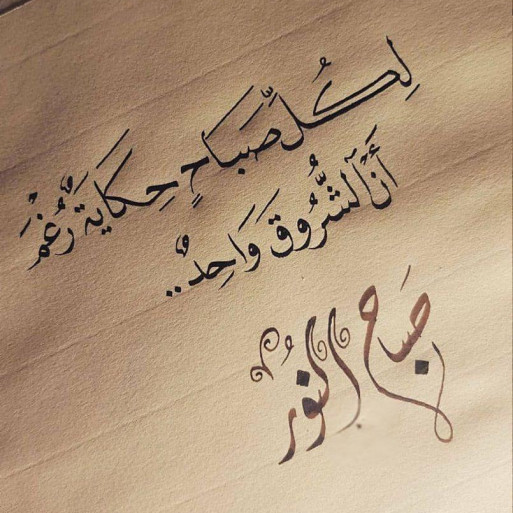 لِكُلِّ صَبَاحٍ حِكَايَةٌ رُغْمَ
أَنَّ الشُّرُوقَ وَاحِدٌ..
صباح النُور